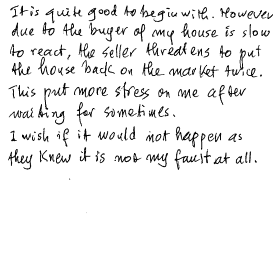 It is quite good to begin with. However
due to the buyer of my house is slow
to react, the seller threatens to put
the house back on the market twice.
This put more stress on me after
waiting for sometimes.
I wish if it would not happen as
they knew it is not my fault at all.